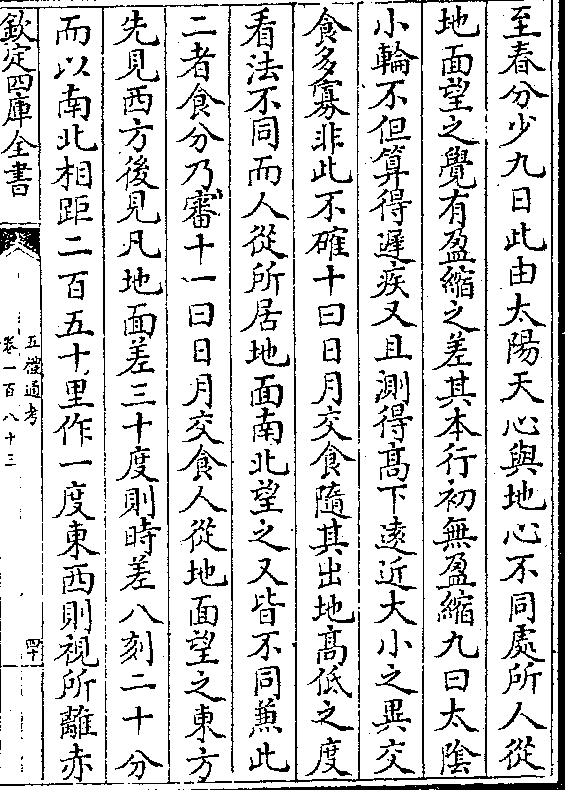 至春分少九日此由太陽天心與地心不同處所人從
地面望之覺有盈縮之差其本行初無盈縮九曰太陰
小輪不但算得遲疾又且測得髙下逺近大小之異交
食多寡非此不確十曰日月交食隨其出地髙低之度
看法不同而人從所居地面南北望之又皆不同兼此
二者食分乃審十一曰日月交食人從地面望之東方
先見西方後見凡地面差三十度則時差八刻二十分
而以南北相距二百五十里作一度東西則視所離赤
欽定四庫全書
五禮通考
卷一百八十三
四十